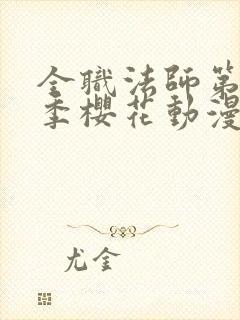 全職法師第
季櫻花動漫
尤金